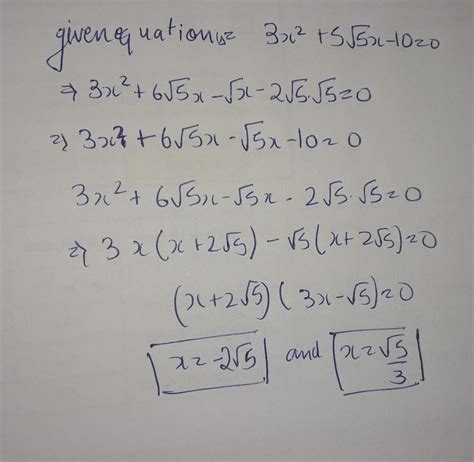 given equation is = 3x² + 5√5x - 10 = 0
⇒ 3x² + 6√5x - √x - 2√5.√5 = 0
⇒ 3x² + 6√5x - √5x - 10 = 0
3x² + 6√5x - √5x - 2√5.√5 = 0
⇒ 3x(x + 2√5) - √5(x + 2√5) = 0
(x + 2√5)(3x - √5) = 0
x = -2√5 and x = √5/3